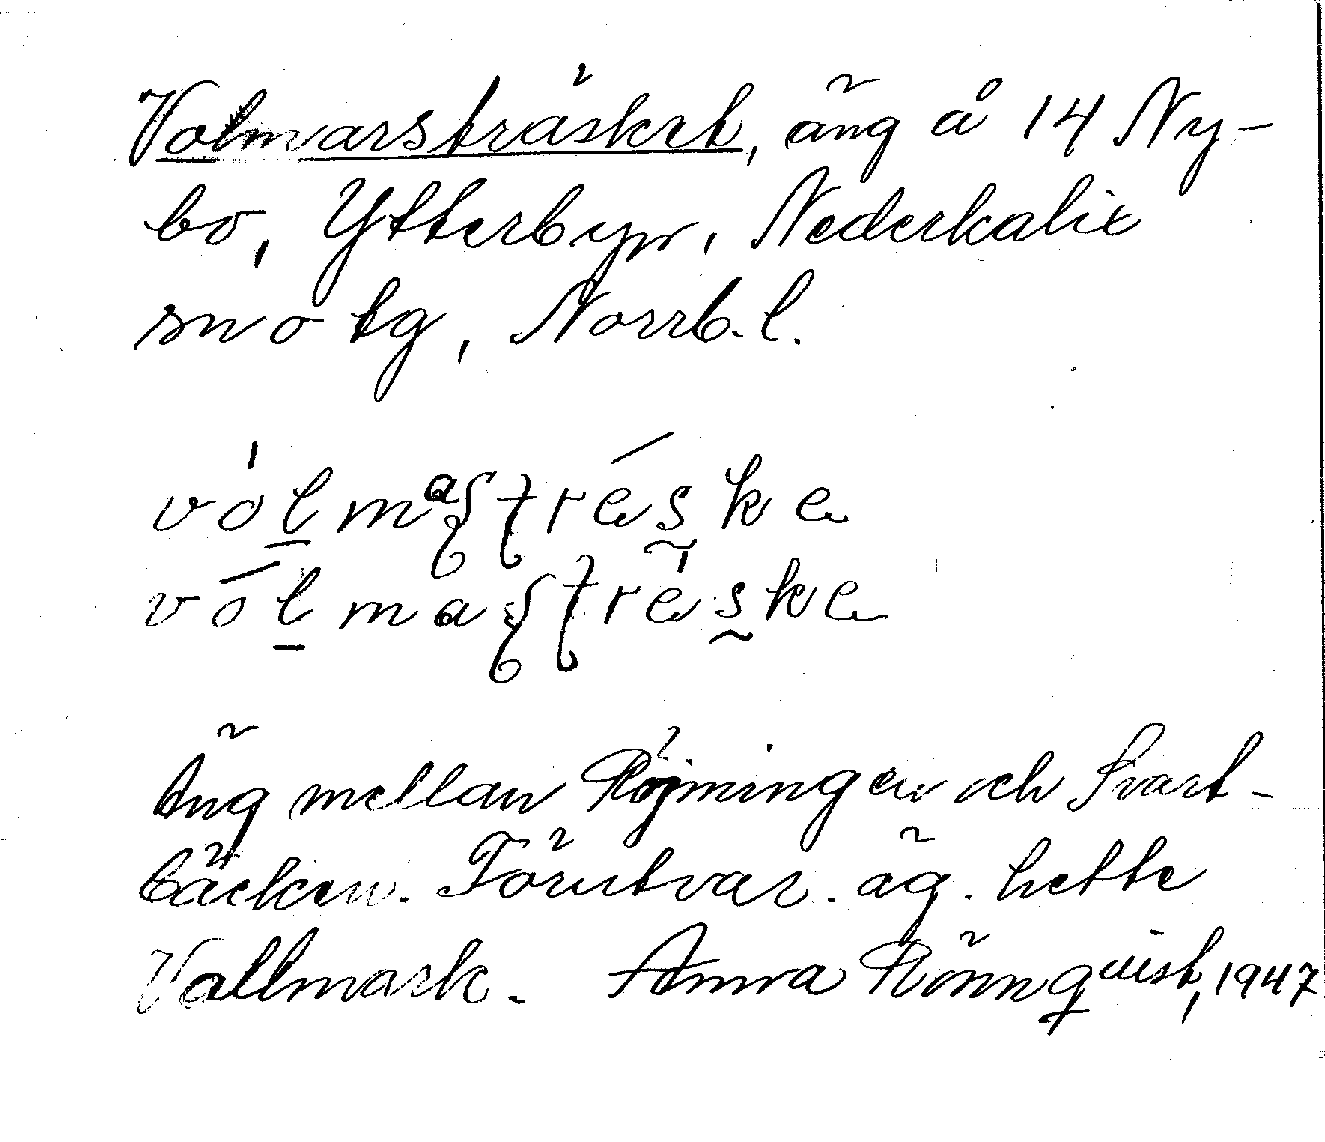 Volmarsträsket, äng å 14 Ny-
bo, Ytterbyn, Nederkalix
sn o tg, Norrb. l.
vólmaʂʈrɶ́ske
vólmaʂʈrɶ́ske
Äng mellan Röjningen och Svart-
bäcken. Förutvar. äg. hette
Vallmark. Anna Rönnquist, 1947